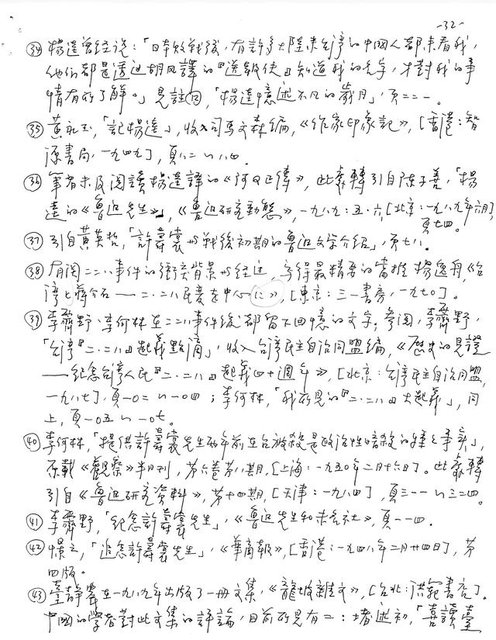 -32-
㉞ 楊逵曾經說:「日本敗戰後,有許多大陸來台灣的中國人都來看我,
他們都是透過胡風譯的『送報伕』且知道我的名字,才對我的事
情有所了解。」見註⑪,「楊逵憶述不凡的歲月」,頁二二一。
㉟ 黃永玉,「記楊逵」,收入司馬文森編,《作家印象記》,[香港:智
源書局,一九四九],頁八二~八四。
㊱ 筆者未及閱讀楊逵譯的《阿Q正傳》,此處轉引自陳子善,「楊
逵的《魯迅先生》」,《魯迅研究動態》,一九八九:五.六,[北京:一九八九六月],
頁七四。
㊲ 引自黃英哲,「許壽裳與戰後初期的魯迅文學介紹」,頁七八。
㊳ 有關二二八事件的衝突背景與經過,
台
灣と蔣介石——二.二八民變を中心に》,[東京:三一書房,一九七〇]。
㊴ 李霽野、李何林在二二八事件後都留下回憶的文字,參閱,李霽野,
「台灣『二.二八』起義點滴」,收入台灣民主自治同盟編,《歷史的見證
——紀念台灣人民『二.二八』起義四十週年》,[北京:台灣民主自治同盟,
一九八七],頁一〇二~一〇四;李何林,「我所見的『二.二八』大起義」,同
上,頁一〇五~一〇七。
㊵ 李何林,「提供許壽裳先生的年前在台被殺是政治性暗殺的一事實」,
原載《觀察》半月刊,第六卷第八期,[上海:一九五〇年二月十六日]。此處轉
引自《魯迅研究資料》,第十四期,[天津:一九八四],頁三一~三二四。
㊶ 李霽野,「紀念許壽裳先生」,《魯迅先生和未名社》,頁一一四。
㊷ 「追念許壽裳先生」,《華商報》,[香港:一九四八年二月廿四日],第
四版。
㊸ 臺靜農在一九八九年出版了一冊文集,《龍坡雜文》,[台北:洪範書店]。
中國的學者對此文集的評論,目前所見有二:堵述初,「喜讀臺